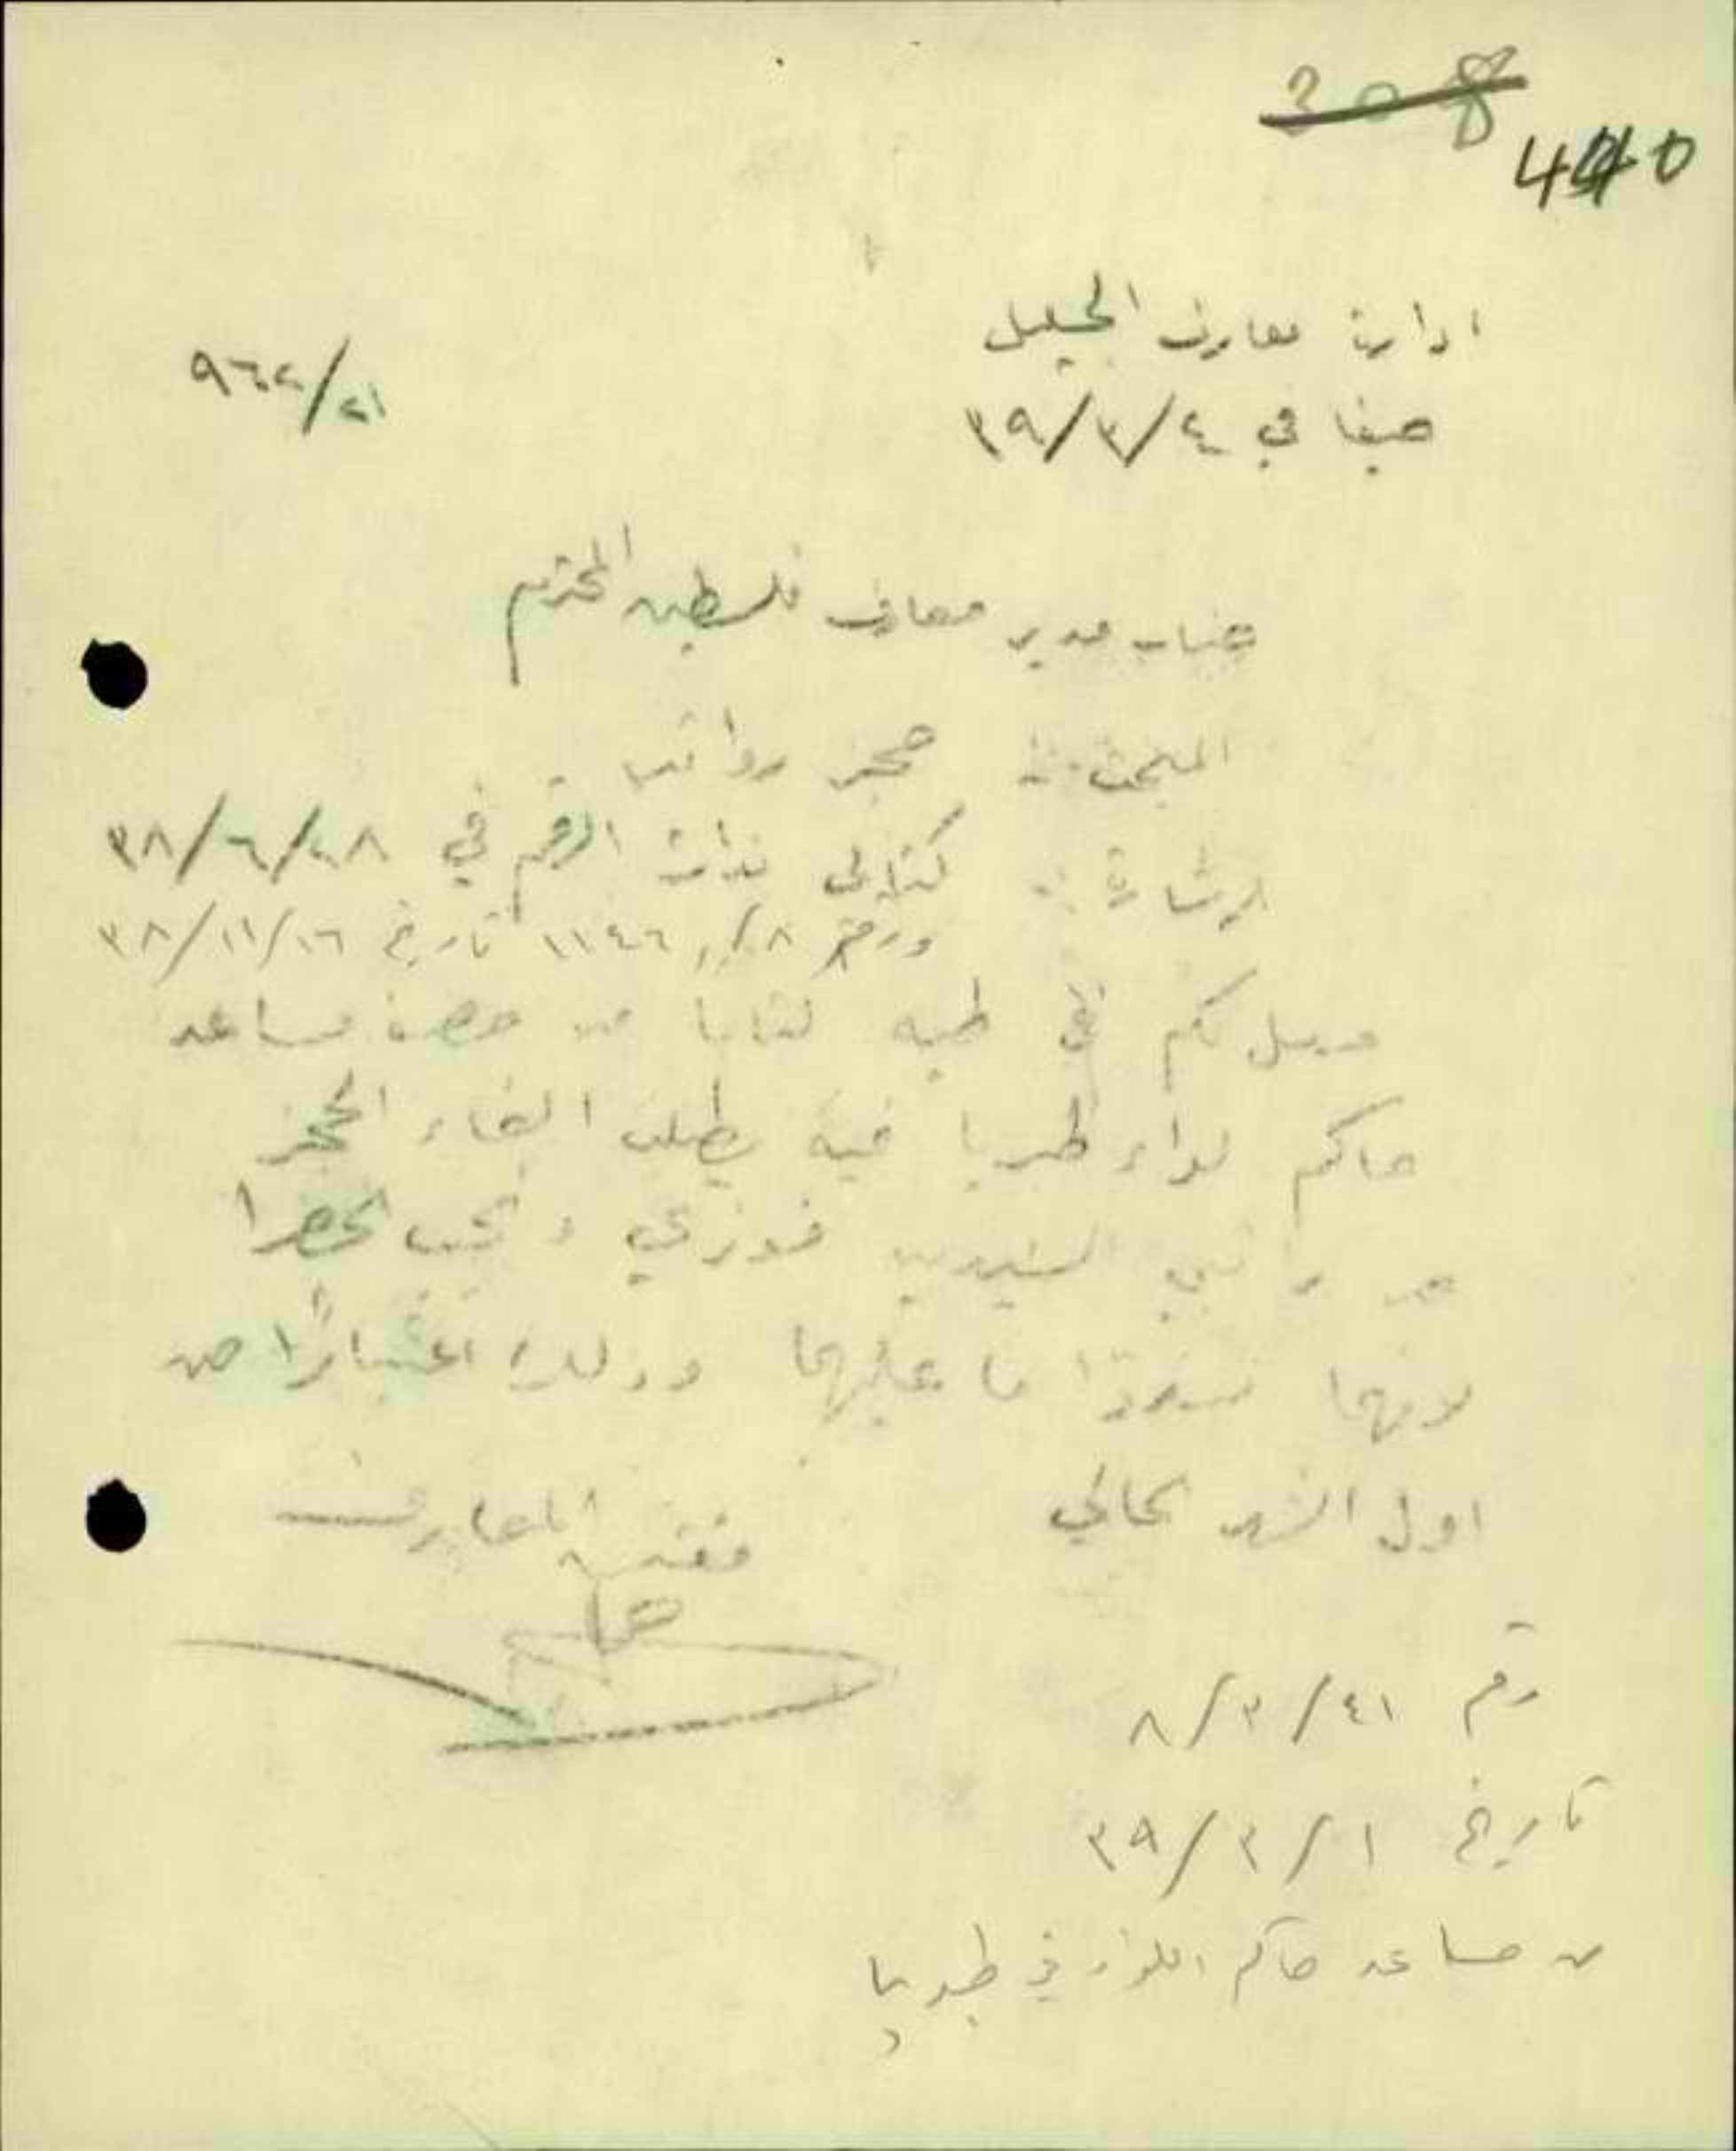 208
440
ادارة معارف الجليل
٩٦٢/٢١
حيفا في ٣٩/٣/٤
جناب مدير معارف فلسطين المحترم
المبحث :- حجز رواتب
الاشارة :- كتابي بذات الرقم في ٣٨/٦/٢٨
ورقم ٨/ ١١٤٦ تاريخ ٣٨/١١/١٦
مرسل لكم في طيه كتابا من حضرة مساعد
حاكم لواء طبريا فيه يطلب الغاء الحجز
عن راتبي السيدين فوزي و نجيب الخضرا
لانهما سددا ما عليهما وذلك اعتبارًا من
اول الشهر الحالي
مفتش المعارف
رقم ٨/٣/٤١
تاريخ ٣٩/٣/١
من مساعد حاكم اللواء في طبريا